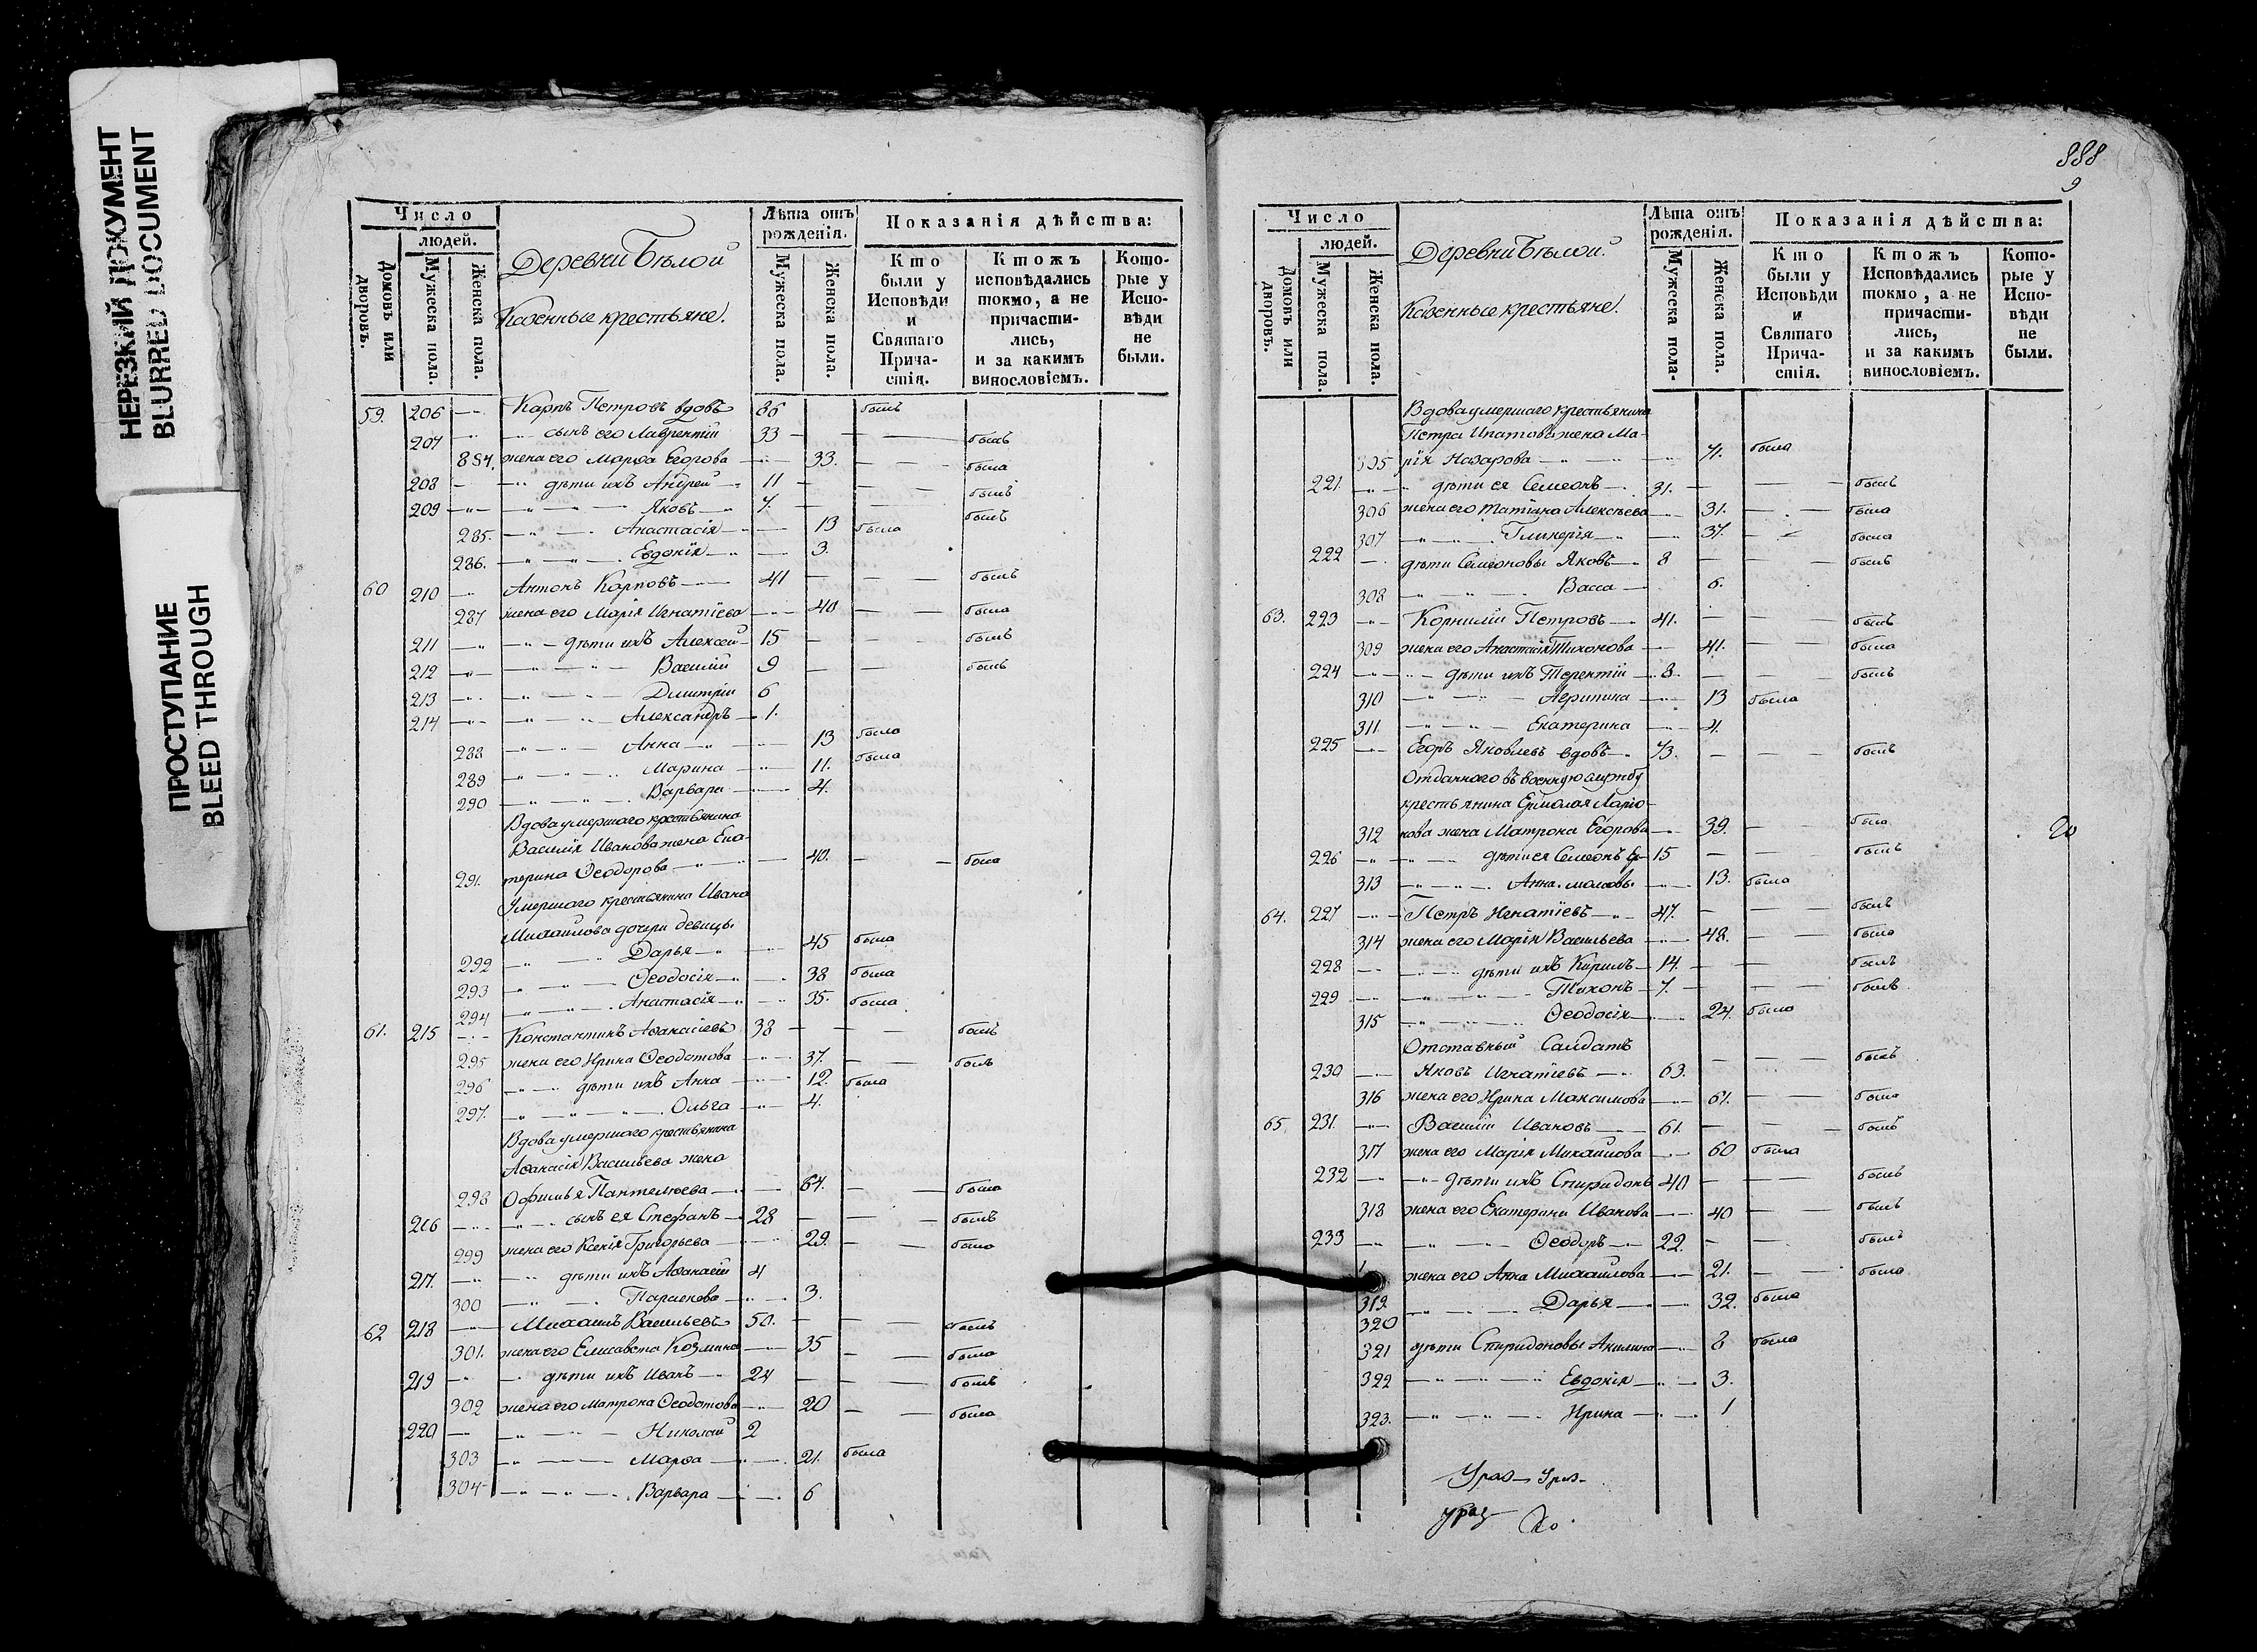 НЕРЕЗКИЙ ДОКУМЕНТ
BLURRED DOCUMENT
ПРОСТУПАНИЕ
BLEED THROUGH
Число
людей.
Домовъ или дворовъ.
Мужеска пола.
Женска пола.
Деревни Бѣлой
Казенные крестьяне.
Лѣта отъ рожденія.
Мужеска пола.
Женска пола.
Показанія дѣйства:
Кто были у Исповѣди и Святаго Причастія.
Ктожъ исповѣдались токмо, а не причастились, и за какимъ винословіемъ.
Которые у Исповѣди не были.
59. 206 Карпъ Петровъ вдовъ 86 былъ
207 сынъ его Лаврентій 33 былъ
284. жена его Марѳа Егорова 33. была
208 дѣти ихъ Андрей 11 былъ
209 Яковъ 7. былъ
285. Анастасія 13 была
286. Евдокія 3.
60 210 Антонъ Карповъ 41 былъ
287 жена его Марія Игнатіева 40 была
211 дѣти ихъ Алексей 15 былъ
212 Василій 9 былъ
213 Дмитрій 6
214 Александръ 1.
288 Анна 13 была
289 Марина 11. была
290 Варвара 4.
Вдова умершаго крестьянина
Василія Иванова жена Ека-
291. терина Ѳеодорова 40. была
Умершаго крестьянина Ивана
Михаилова дочери девицы.
292 Дарья 45 была
293 Ѳеодосія 38 была
294 Анастасія 35. была
61. 215 Константинъ Аѳанасіевъ 38 былъ
295 жена его Ирина Ѳеодотова 37. былъ
296 дѣти ихъ Анна 12. была
297. Ольга 4.
Вдова умершаго крестьянина
Аѳанасія Васильева жена
298 Офимья Пантелеева 64. была
216 сынъ ея Стефанъ 28 былъ
299 жена его Ксенія Григорьева 29. была
217. дѣти ихъ Аѳанасій 4
300 Парасковa 3.
62 218 Михаилъ Васильевъ 50. былъ
301. жена его Елисавета Козмина 35 была
219 дѣти ихъ Иванъ 24 былъ
302 жена его Матрона Ѳеодотова 20 была
220 Николай 2
303 Марѳа 21. была
304 Варвара 6
888
9
Число
людей.
Домовъ или дворовъ.
Мужеска пола.
Женска пола.
Деревни Бѣлой.
Казенные крестьяне.
Лѣта отъ рожденія.
Мужеска пола.
Женска пола.
Показанія дѣйства:
Кто были у Исповѣди и Святаго Причастія.
Ктожъ Исповѣдались токмо, а не причастились, и за какимъ винословіемъ.
Которые у Исповѣди не были.
Вдова умершаго крестьянина
Петра Ипатова жена Ма-
305 рія Назарова была
221. дѣти ея Семеонъ 31. былъ
306 жена его Татіана Алексѣева 31. была
307 Гликерія 37. была
222 дѣти Семеоновы Яковъ 8 былъ
308 Васса 6.
63. 223 Корнилій Петровъ 41. былъ
309 жена его Анастасія Тихонова 41. была
224 дѣти ихъ Терентій 8. былъ
310 Агрипина 13 была
311 Екатерина 4.
225 Егоръ Яковлевъ вдовъ 73. былъ
Отданного въ военную службу
крестьянина Ермолая Ларіо-
312 нова жена Матрона Егорова 39. была
226 дѣти ея Семеонъ Ер- 15 былъ
313 Анна. молаевы. 13. была
64. 227 Петръ Игнатіевъ 47. былъ
314 жена его Марія Васильева 48. была
228 дѣти ихъ Кирилъ 14. былъ
229 Тихонъ 7. былъ
315 Ѳеодосія 24. была
Отставный Салдатъ
230 Яковъ Игнатіевъ 63. былъ
316 жена его Ирина Максимова 61. была
65 231. Василій Ивановъ 61. былъ
317 жена его Марія Михаилова 60 была
232 дѣти ихъ Спиридонъ 40 былъ
318 жена его Екатерина Иванова 40 былъ
233 Ѳеодоръ 22. былъ
жена его Анна Михаилова 21. была
319. Дарья 32. была
320
321 дѣти Спиридоновы Акилина 8 была
322 Евдокія 3.
323. Ирина 1